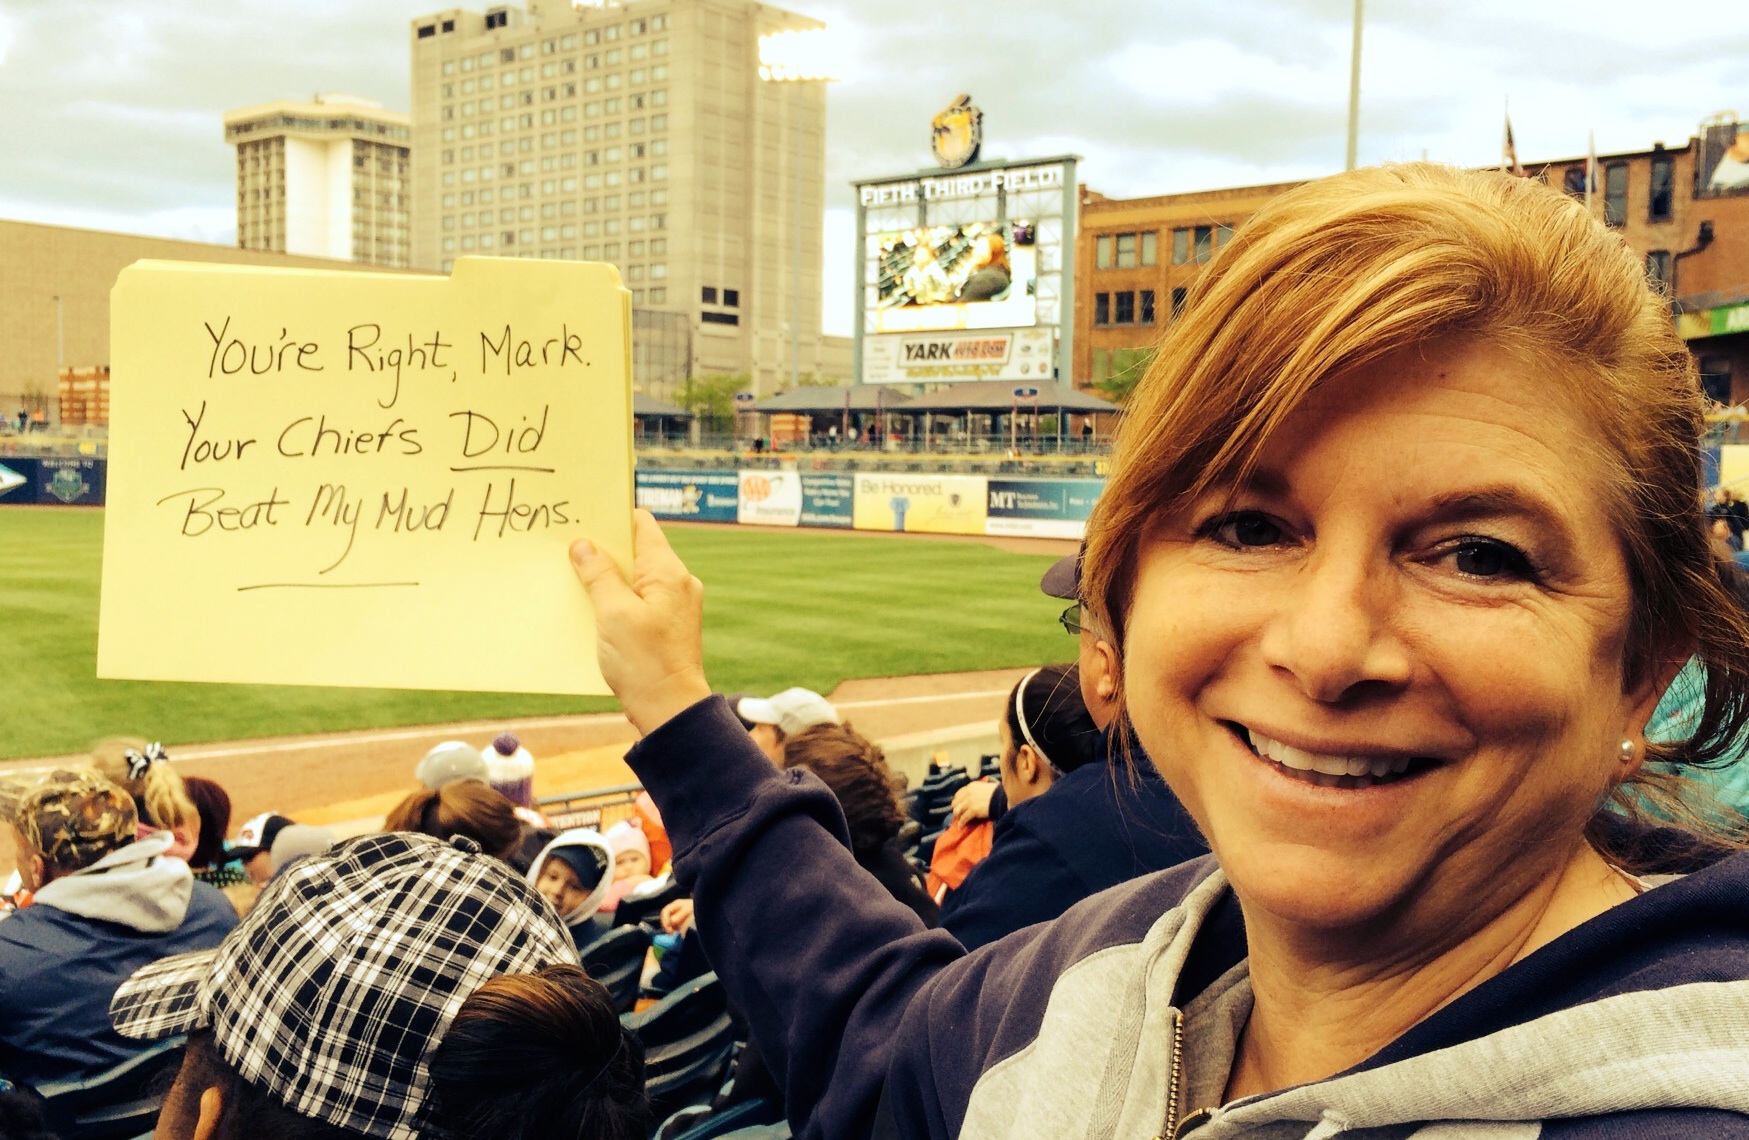 You're Right, Mark.
Your Chiefs Did
Beat My Mud Hens.
FIFTH THIRD FIELD
YARK
Be Honored.
MT